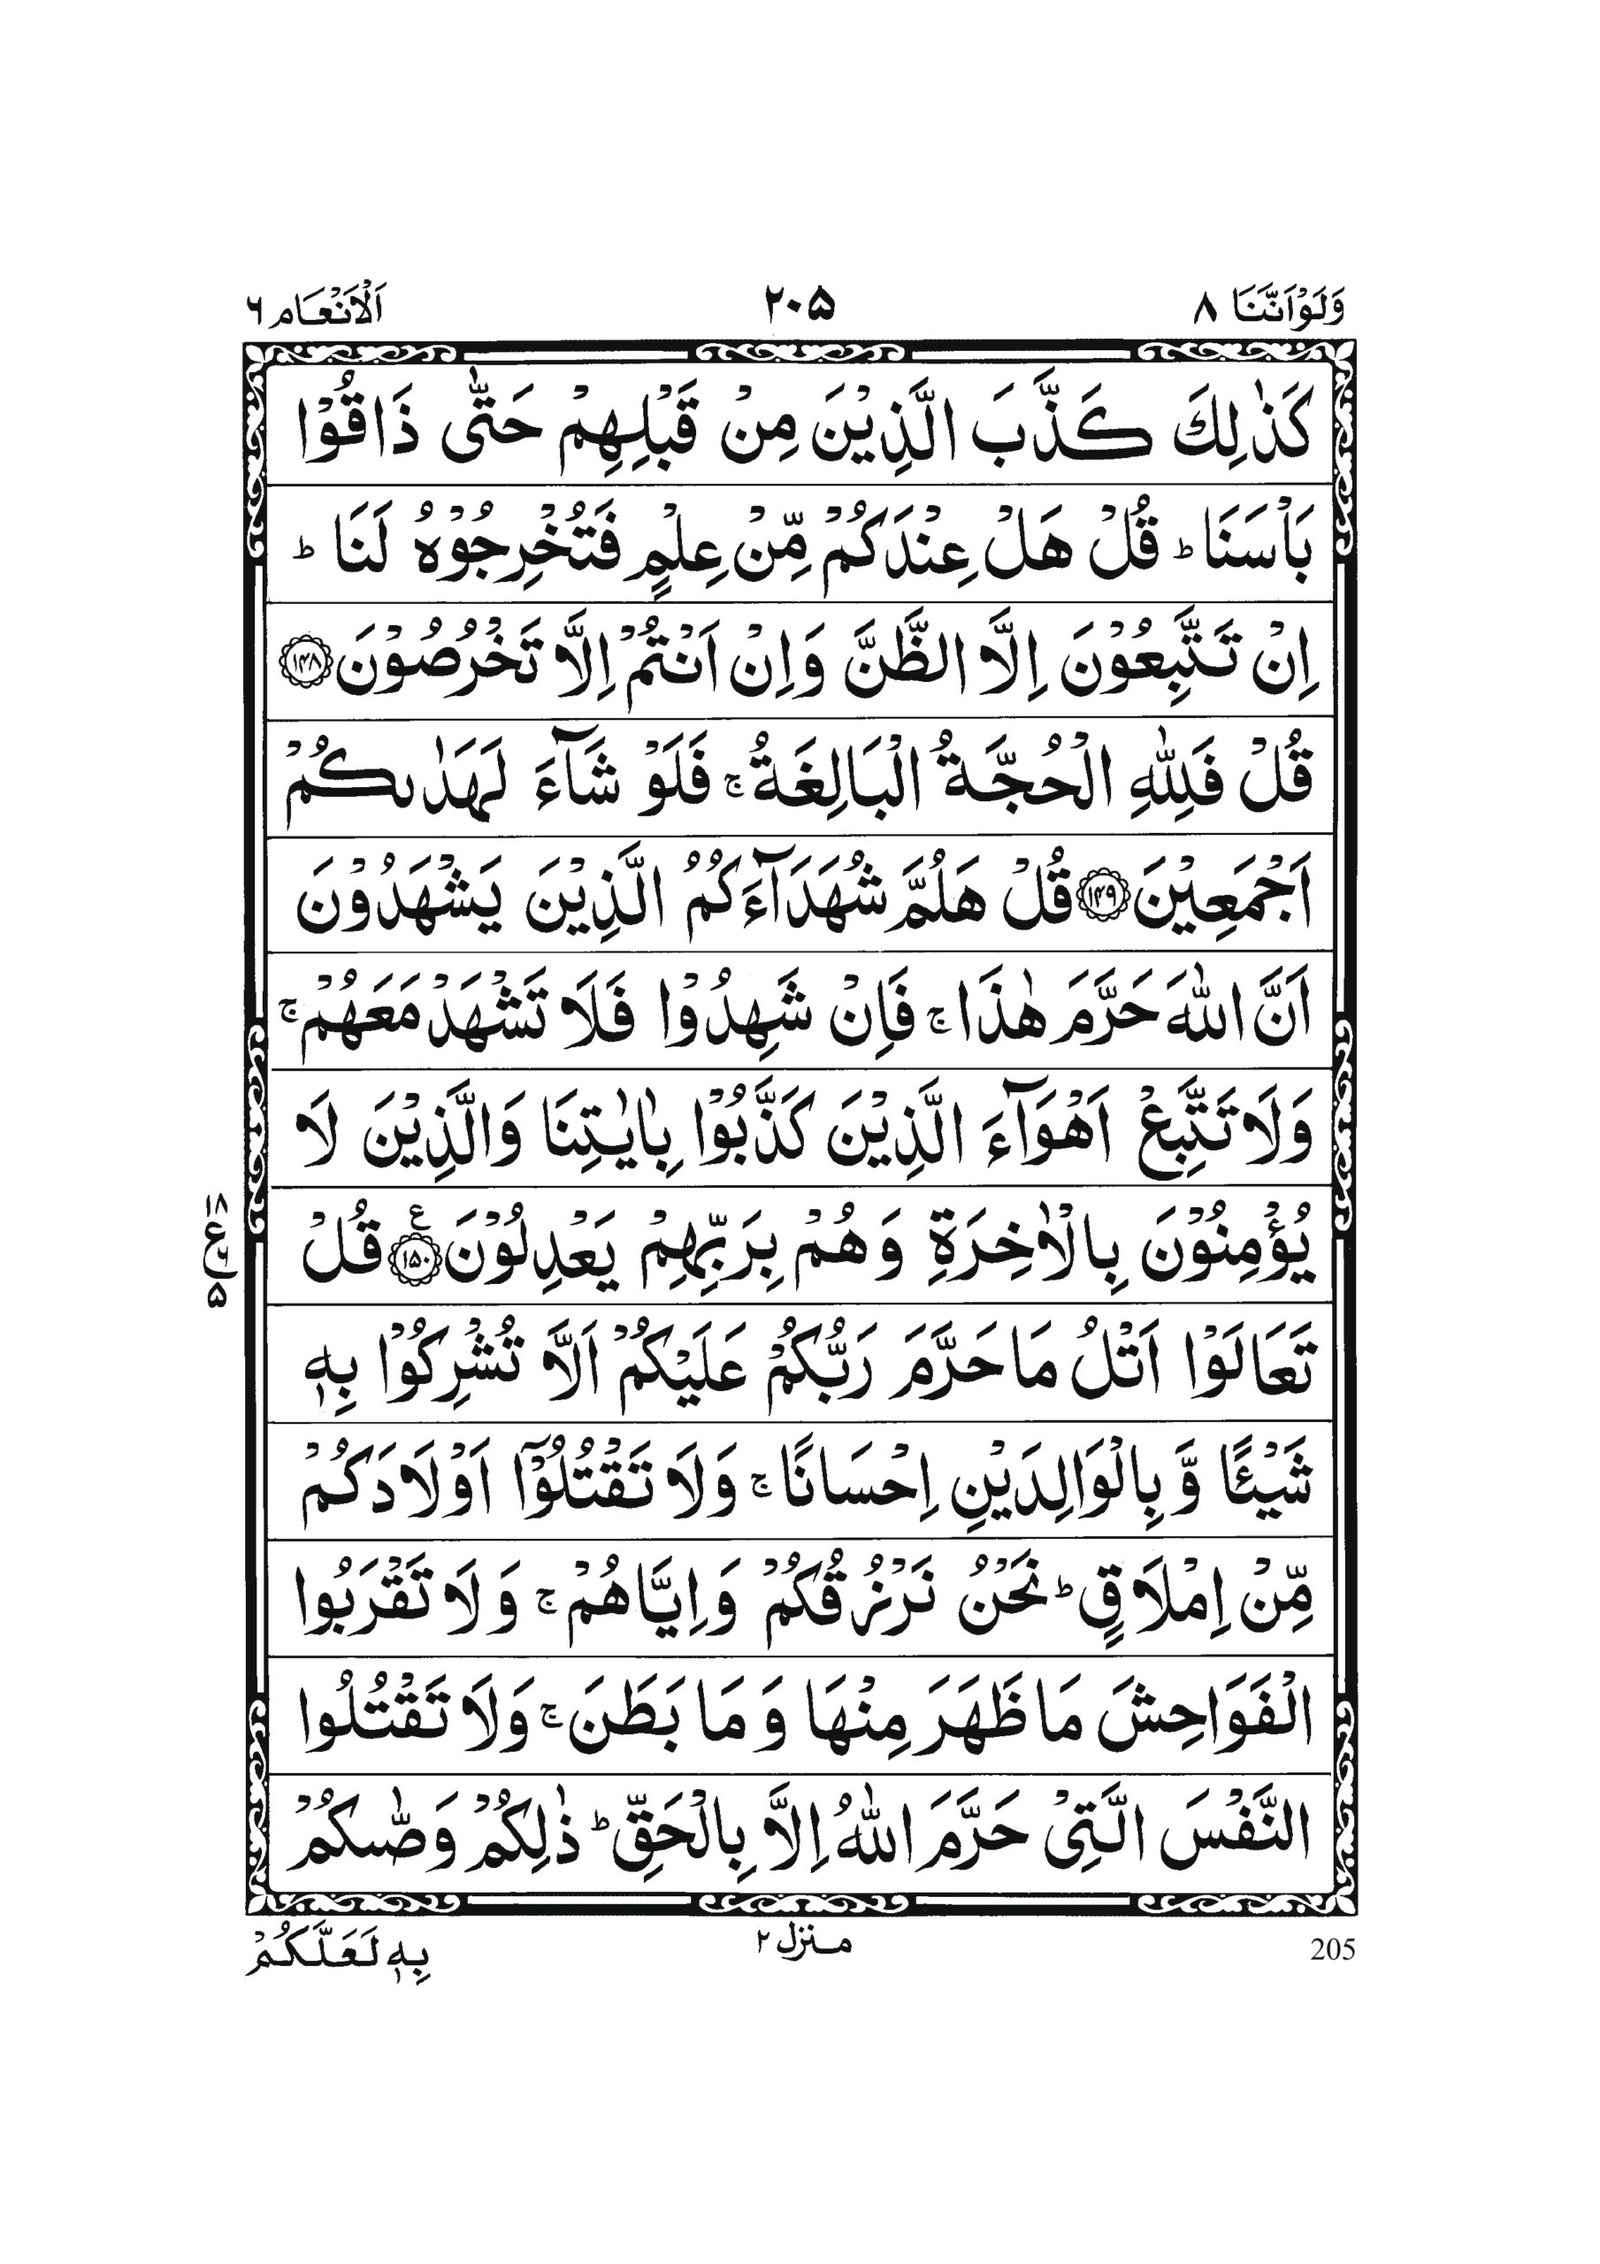 وَلَوْاَنَّنَا ٨ ٢٠٥ اَلْاَنْعَام ٦
كَذٰلِكَ كَذَّبَ الَّذِيْنَ مِنْ قَبْلِهِمْ حَتّٰى ذَاقُوْا
بَاْسَنَا ؕ قُلْ هَلْ عِنْدَكُمْ مِّنْ عِلْمٍ فَتُخْرِجُوْهُ لَنَا ؕ
اِنْ تَتَّبِعُوْنَ اِلَّا الظَّنَّ وَاِنْ اَنْتُمْ اِلَّا تَخْرُصُوْنَ ﴿١٤٨﴾
قُلْ فَلِلّٰهِ الْحُجَّةُ الْبَالِغَةُ ۚ فَلَوْ شَآءَ لَهَدٰىكُمْ
اَجْمَعِيْنَ ﴿١٤٩﴾ قُلْ هَلُمَّ شُهَدَآءَكُمُ الَّذِيْنَ يَشْهَدُوْنَ
اَنَّ اللّٰهَ حَرَّمَ هٰذَا ۚ فَاِنْ شَهِدُوْا فَلَا تَشْهَدْ مَعَهُمْ ۚ
وَلَا تَتَّبِعْ اَهْوَآءَ الَّذِيْنَ كَذَّبُوْا بِاٰيٰتِنَا وَالَّذِيْنَ لَا
يُؤْمِنُوْنَ بِالْاٰخِرَةِ وَهُمْ بِرَبِّهِمْ يَعْدِلُوْنَ ﴿١٥٠﴾ ع قُلْ
١٨ ع ٦ ٥
تَعَالَوْا اَتْلُ مَا حَرَّمَ رَبُّكُمْ عَلَيْكُمْ اَلَّا تُشْرِكُوْا بِهٖ
شَيْـًٔا وَّ بِالْوَالِدَيْنِ اِحْسَانًا ۚ وَلَا تَقْتُلُوْۤا اَوْلَادَكُمْ
مِّنْ اِمْلَاقٍ ؕ نَحْنُ نَرْزُقُكُمْ وَاِيَّاهُمْ ۚ وَلَا تَقْرَبُوا
الْفَوَاحِشَ مَا ظَهَرَ مِنْهَا وَمَا بَطَنَ ۚ وَلَا تَقْتُلُوا
النَّفْسَ الَّتِيْ حَرَّمَ اللّٰهُ اِلَّا بِالْحَقِّ ؕ ذٰلِكُمْ وَصّٰىكُمْ
205 منزل ٢ بِهٖ لَعَلَّكُمْ